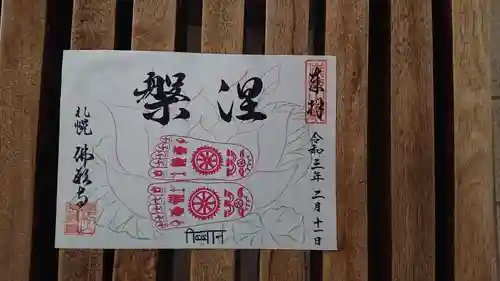 奉拝
令和三年二月十一日
涅槃
निब्बान
札幌
佛願寺